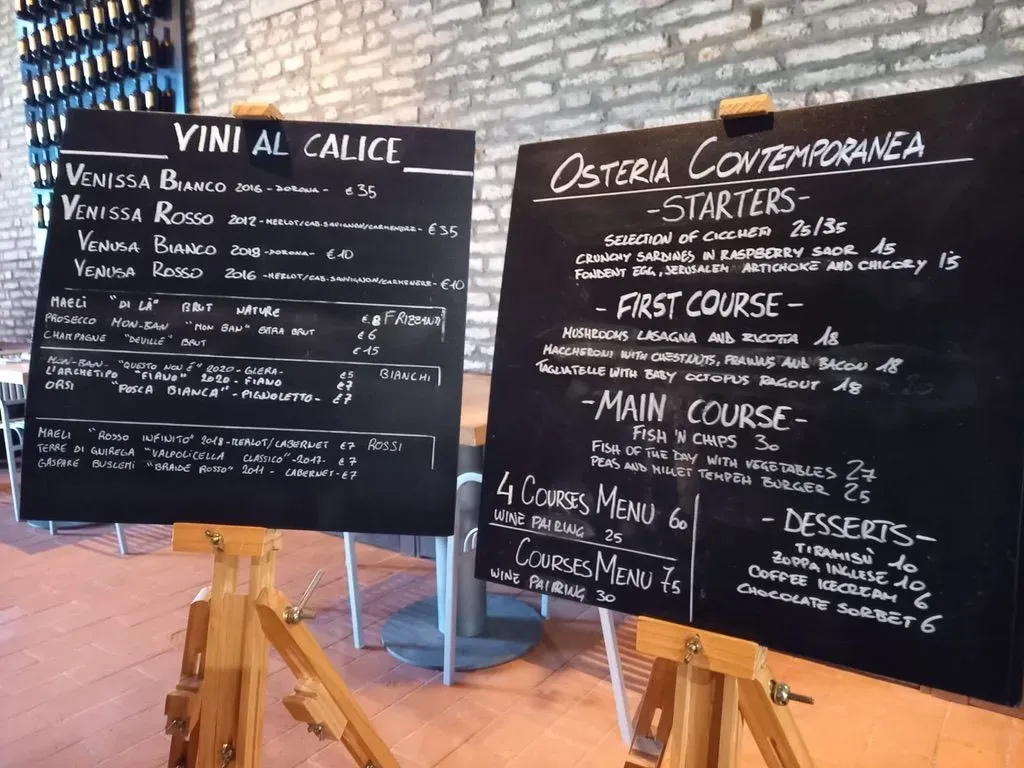 VINI AL CALICE
VENISSA BIANCO 2016 - DORONA - €35
VENISSA ROSSO 2012 - MERLOT/CAB.SAUVIGNON/CARMENERE - €35
VENUSA BIANCO 2019 - DORONA - €10
VENUSA ROSSO 2016 - MERLOT/CAB.SAUVIGNON/CARMENERE - €10
MAELI "DI LÀ" BRUT NATURE €.8 FRIZZANTI
PROSECCO MON-BAN "MON BAN" EXTRA BRUT €6
CHAMPAGNE "DEVILLE" BRUT €15
MON-BAN- "QUESTO NON È" 2020 - GLERA- €5 BIANCHI
L'ARCHETIPO "FIANO" 2020 - FIANO €7
ORSI "POSCA BIANCA" - PIGNOLETTO - €7
MAELI "ROSSO INFINITO" 2018 - MERLOT/CABERNET €7 ROSSI
TERRE DI GNIREGA "VALPOLICELLA CLASSICO" - 2017 - €7
GASPARE BUSCEMI "BRAIDE ROSSO" 2011 - CABERNET - €7
OSTERIA CONTEMPORANEA
- STARTERS -
SELECTION OF CICCHETI 25/35
CRUNCHY SARDINES IN RASPBERRY SAOR 15
FONDENT EGG, JERUSALEM ARTICHOKE AND CHICORY 15
- FIRST COURSE -
MUSHROOMS LASAGNA AND RICOTTA 18
MACCHERONI WITH CHESTNUTS, PRAWNS AND BACON 18
TAGLIATELLE WITH BABY OCTOPUS RAGOUT 18
- MAIN COURSE -
FISH 'N CHIPS 30
FISH OF THE DAY WITH VEGETABLES 27
PEAS AND MILLET TEMPEH BURGER 25
4 COURSES MENU 60
WINE PAIRING 25
COURSES MENU 75
WINE PAIRING 30
- DESSERTS -
TIRAMISÙ 10
ZUPPA INGLESE 10
COFFEE ICECREAM 6
CHOCOLATE SORBET 6